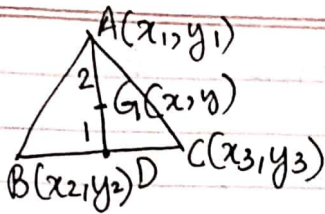 A(x₁, y₁)
2
G(x, y)
1
B(x₂, y₂) D C(x₃, y₃)